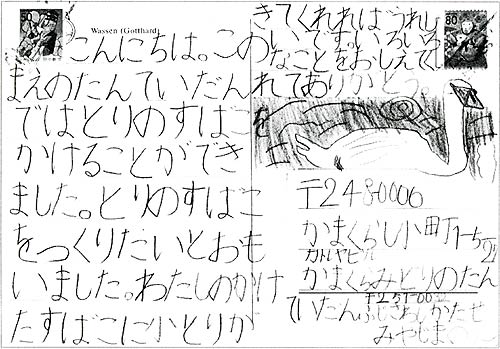 50
80
Wassen (Gotthard)
こんにちは。この
まえのたんていだん
ではとりのすばこ
かけることができ
ました。とりのすばこ
をつくりたいとおも
いました。わたしのかけ
たすばこに小とりが
きてくれればうれし
いです。いろいろ
なことをおしえてく
れてありがとう。
〒248-0006
かまくらし小町1-
かまくらみどりのたん
ていだん
〒251-00
ふじさわしかたせ
みやじま